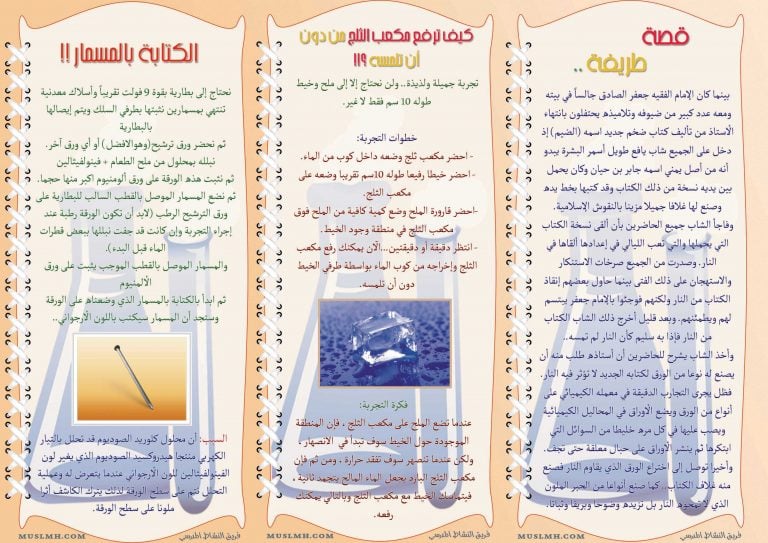 قصة
طريفة ..
بينما كان الإمام الفقيه جعفر الصادق جالساً في بيته
ومعه عدد كبير من ضيوفه وتلاميذه يحتفلون بانتهاء
الأستاذ من تأليف كتاب ضخم جديد اسمه (الضيم) إذ
دخل على الجميع شاب يافع طويل أسمر البشرة يبدو
أنه من أصل يمني اسمه جابر بن حيان وكان يحمل
بين يديه نسخة من ذلك الكتاب وقد كتبها بخط يده
وصنع لها غلافا جميلا مزينا بالنقوش الإسلامية.
وفاجأ الشاب جميع الحاضرين بأن ألقى نسخة الكتاب
التي يحملها والتي تعب الليالي في إعدادها ألقاها في
النار. وصدرت من الجميع صرخات الاستنكار
والاستهجان على ذلك الفتى بينما حاول بعضهم إنقاذ
الكتاب من النار ولكنهم فوجئوا بالإمام جعفر يبتسم
لهم ويطمئنهم. وبعد قليل أخرج ذلك الشاب الكتاب
من النار فإذا به سليم كأن النار لم تمسه..
وأخذ الشاب يشرح للحاضرين أن أستاذه طلب منه أن
يصنع له نوعا من الورق لكتابه الجديد لا تؤثر فيه النار.
فظل يجرى التجارب الدقيقة في معمله الكيميائي على
أنواع من الورق ويضع الأوراق في المحاليل الكيميائية
ويصب عليها في كل مره خليطا من السوائل التي
ابتكرها ثم ينشر الأوراق على حبال معلقة حتى تجف.
وأخيرا توصل إلى اختراع الورق الذي يقاوم النار فصنع
منه غلاف الكتاب.. كما صنع أنواعا من الحبر الملون
الذي لا تمحوه النار بل تزيده وضوحا وبريقا وثباتا.
فريق النشاط المدرسي
MUSLMH.COM
كيف ترفع مكعب الثلج من دون
أن تلمسه ؟!!
تجربة جميلة ولذيذة.. ولن نحتاج إلا إلى ملح وخيط
طوله 10 سم فقط لا غير.
خطوات التجربة:
- احضر مكعب ثلج وضعه داخل كوب من الماء.
- احضر خيطا رفيعا طوله 10سم تقريبا وضعه على
مكعب الثلج.
-احضر قارورة الملح وضع كمية كافية من الملح فوق
مكعب الثلج في منطقة وجود الخيط.
- انتظر دقيقة أو دقيقتين...الآن يمكنك رفع مكعب
الثلج وإخراجه من كوب الماء بواسطة طرفي الخيط
دون أن تلمسه.
فكرة التجربة:
عندما تضع الملح على مكعب الثلج ، فإن المنطقة
الموجودة حول الخيط سوف تبدأ في الانصهار ،
ولكن عندما تنصهر سوف تفقد حرارة ، ومن ثم فإن
مكعب الثلج البارد يجعل الماء المالح يتجمد ثانية ،
فيتماسك الخيط مع مكعب الثلج وبالتالي يمكنك
رفعه.
فريق النشاط المدرسي
MUSLMH.COM
الكتابة بالمسمار !!
نحتاج إلى بطارية بقوة 9 فولت تقريباً وأسلاك معدنية
تنتهي بمسمارين نثبتها بطرفي السلك ويتم إيصالها
بالبطارية
ثم نحضر ورق ترشيح(وهوالافضل) أو أي ورق آخر.
نبلله بمحلول من ملح الطعام + فينولفيثالين
ثم نثبت هذه الورقة على ورق ألومنيوم اكبر منها حجما.
ثم نضع المسمار الموصل بالقطب السالب للبطارية على
ورق الترشيح الرطب (لابد أن تكون الورقة رطبة عند
إجراء التجربة وإن كانت قد جفت نبللها ببعض قطرات
الماء قبل البدء).
والمسمار الموصل بالقطب الموجب يثبت على ورق
الألمنيوم
ثم ابدأ بالكتابة بالمسمار الذي وضعناها على الورقة
وستجد أن المسمار سيكتب باللون الأرجواني..
السبب: أن محلول كلوريد الصوديوم قد تحلل بالتيار
الكهربي منتجا هيدروكسيد الصوديوم الذي يغير لون
الفينولفيثالين للون الأرجواني عندما يتعرض له وعملية
التحلل تتم على سطح الورقة لذلك يترك الكاشف أثرا
ملونا على سطح الورقة.
فريق النشاط المدرسي
MUSLMH.COM